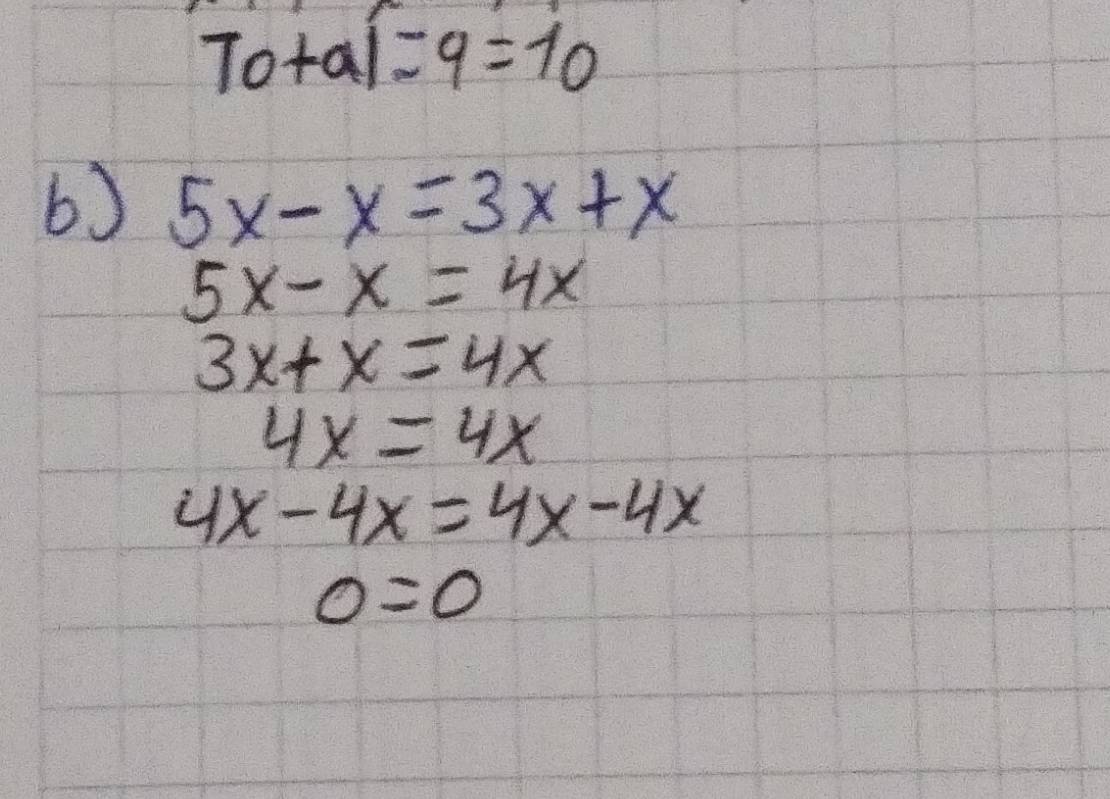 Total=9=10
b) 5x-x=3x+x
5x-x=4x
3x+x=4x
4x=4x
4x-4x=4x-4x
0=0